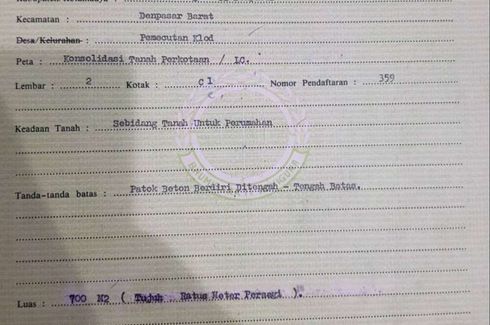 Kecamatan : Denpasar Barat
Desa/Kelurahan : Pemecutan Klod
Peta : Konsolidasi Tanah Perkotaan / LC.
Lembar : 2 Kotak : C 1 Nomor Pendaftaran : 359
Keadaan Tanah : Sebidang Tanah Untuk Perumahan
Tanda-tanda batas : Patok Beton Berdiri Ditengah - Tengah Batas.
Luas : 700 M2 ( Tujuh Ratus Meter Persegi ).